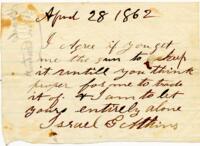 April 28 1862
I Agree if you get
me the gun to keep
it untill you think
proper for me to trade
it of & I am to let
yours entirely alone
Israel G Atkins